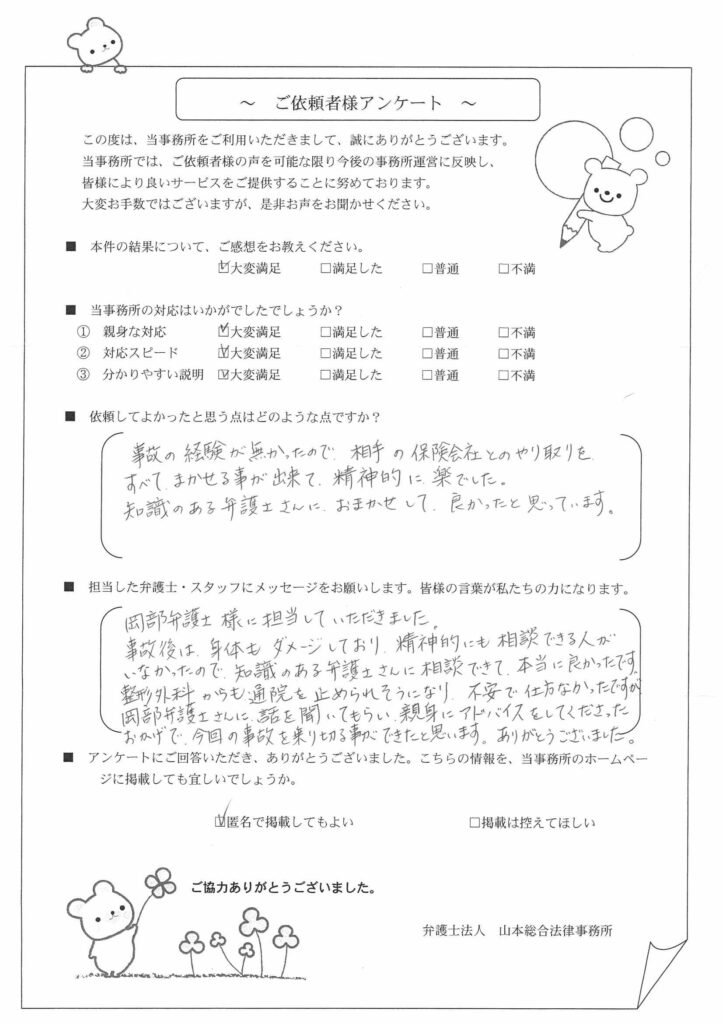 ～　ご依頼者様アンケート　～
この度は、当事務所をご利用いただきまして、誠にありがとうございます。
当事務所では、ご依頼者様の声を可能な限り今後の事務所運営に反映し、
皆様により良いサービスをご提供することに努めております。
大変お手数ではございますが、是非お声をお聞かせください。
■　本件の結果について、ご感想をお教えください。
☑大変満足　□満足した　□普通　□不満
■　当事務所の対応はいかがでしたでしょうか？
①　親身な対応　☑大変満足　□満足した　□普通　□不満
②　対応スピード　☑大変満足　□満足した　□普通　□不満
③　分かりやすい説明　☑大変満足　□満足した　□普通　□不満
■　依頼してよかったと思う点はどのような点ですか？
事故の経験が無かったので、相手の保険会社とのやり取りを
すべて、まかせる事が出来て、精神的に楽でした。
知識のある弁護士さんに、おまかせして、良かったと思っています。
■　担当した弁護士・スタッフにメッセージをお願いします。皆様の言葉が私たちの力になります。
岡部弁護士様に担当していただきました。
事故後は、身体もダメージしており、精神的にも相談できる人が
いなかったので、知識のある弁護士さんに相談できて、本当に良かったです。
整形外科からも通院を止められそうになり、不安で仕方なかったですが
岡部弁護士さんに、話を聞いてもらい、親身にアドバイスをしてくださった
おかげで、今回の事故を乗り切る事ができたと思います。ありがとうございました。
■　アンケートにご回答いただき、ありがとうございました。こちらの情報を、当事務所のホームペー
ジに掲載しても宜しいでしょうか。
☑匿名で掲載してもよい　□掲載は控えてほしい
ご協力ありがとうございました。
弁護士法人　山本総合法律事務所